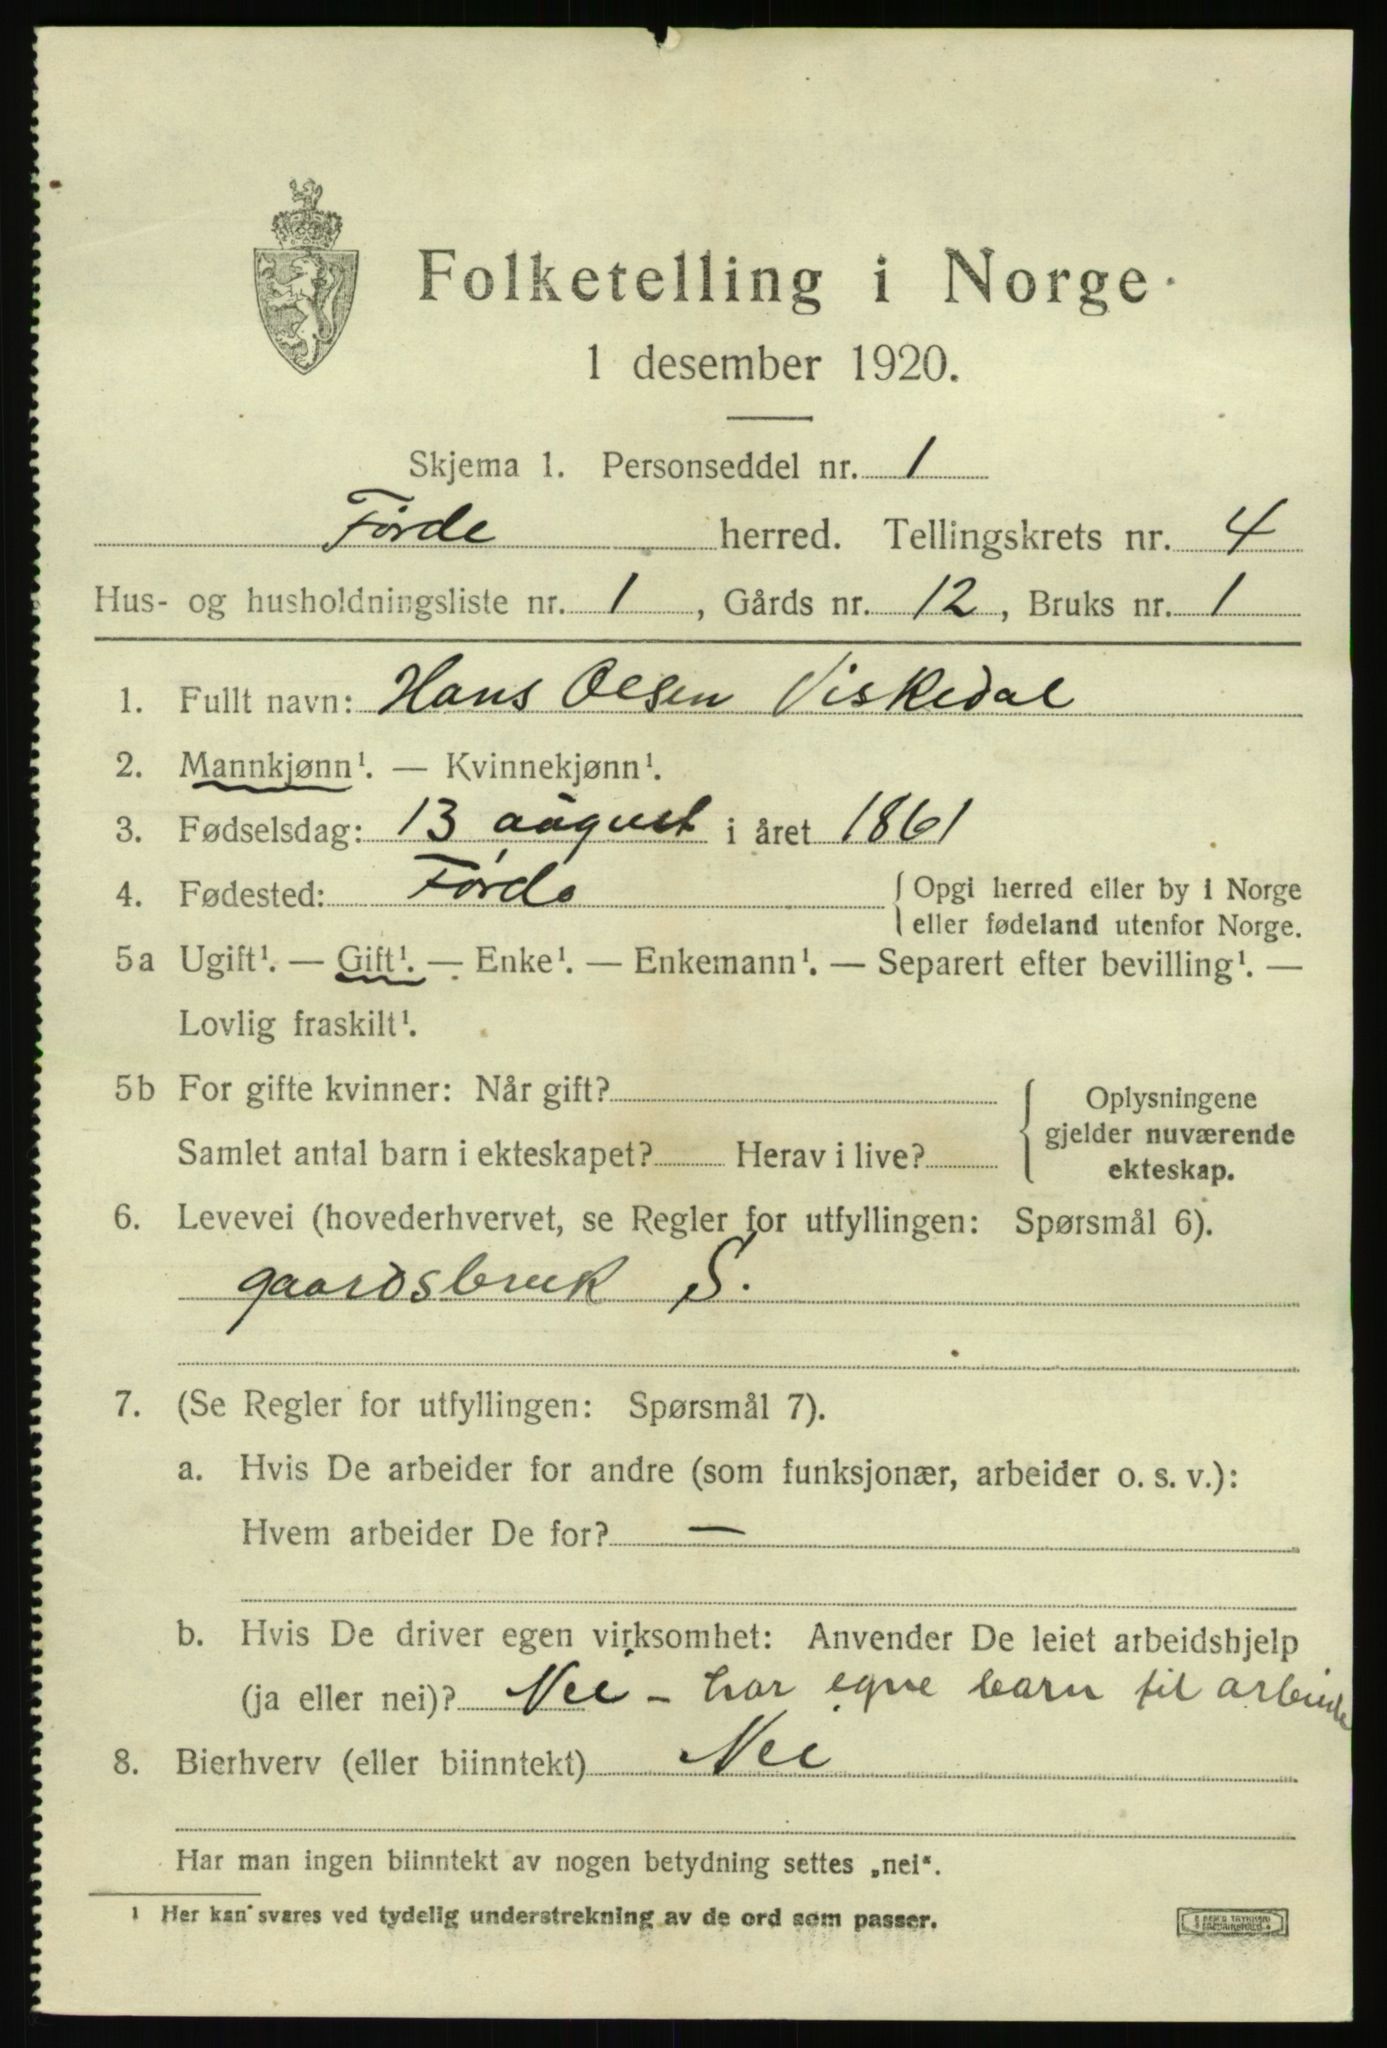 Folketelling i Norge
1 desember 1920.
Skjema 1. Personseddel nr. 1
Førde herred. Tellingskrets nr. 4
Hus- og husholdningsliste nr. 1, Gårds nr. 12, Bruks nr. 1
1. Fullt navn: Hans Olsen Viskedal
2. Mannkjønn¹. — Kvinnekjønn¹.
3. Fødselsdag: 13 august i året 1861
4. Fødested: Førde { Opgi herred eller by i Norge
eller fødeland utenfor Norge.
5a Ugift¹. — Gift¹. — Enke¹. — Enkemann¹. — Separert efter bevilling¹. —
Lovlig fraskilt¹.
5b For gifte kvinner: Når gift? { Oplysningene
gjelder nuværende
Samlet antal barn i ekteskapet? Herav i live?
ekteskap.
6. Levevei (hovederhvervet, se Regler for utfyllingen: Spørsmål 6).
gaardsbruk S.
7. (Se Regler for utfyllingen: Spørsmål 7).
a. Hvis De arbeider for andre (som funksjonær, arbeider o. s. v.):
Hvem arbeider De for? —
b. Hvis De driver egen virksomhet: Anvender De leiet arbeidshjelp
(ja eller nei)? Nei – har egne barn til arbeide
8. Bierhverv (eller biinntekt) Nei
Har man ingen biinntekt av nogen betydning settes „nei“.
1 Her kan svares ved tydelig understrekning av de ord som passer.